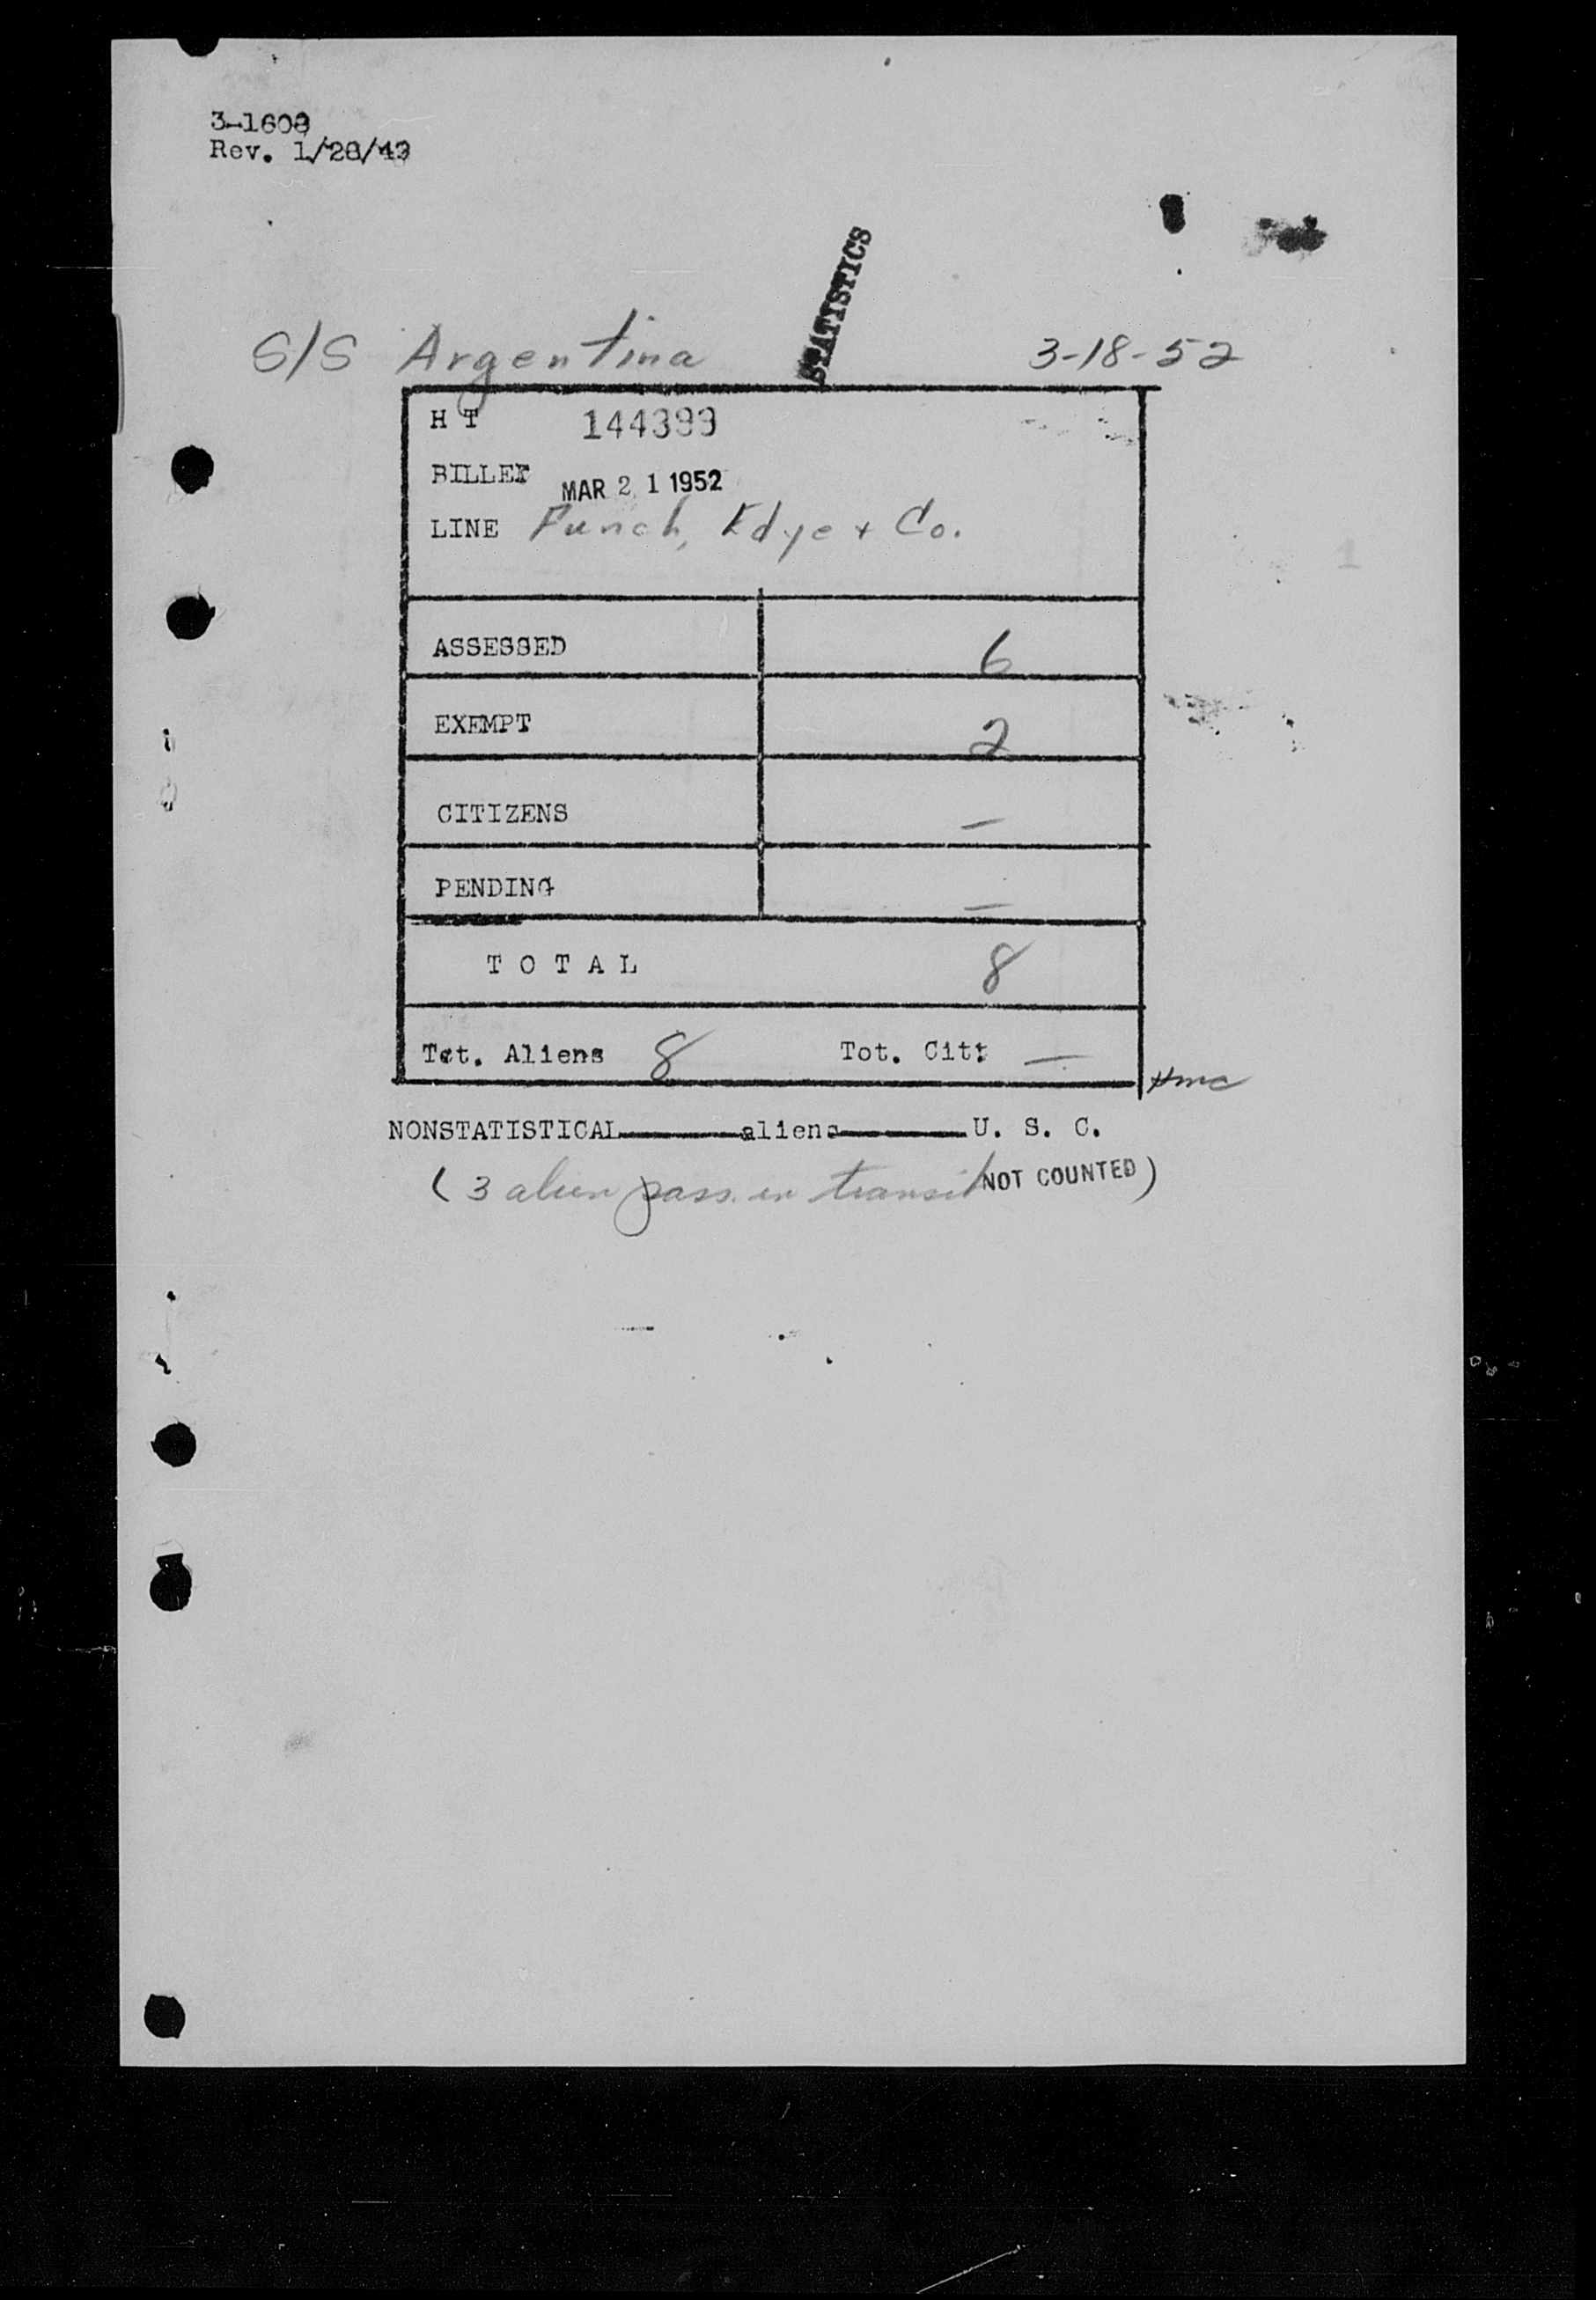 3-1608
Rev. 1/28/49
STATISTICS
S/S Argentina 3-18-52
H T 144399
BILLET MAR 21 1952
LINE Funch, Edye + Co.
ASSESSED 6
EXEMPT 2
CITIZENS —
PENDING —
T O T A L 8
Tot. Aliens 8 Tot. Cit: —
NONSTATISTICAL aliens U. S. C.
( 3 alien pass. in transit NOT COUNTED )